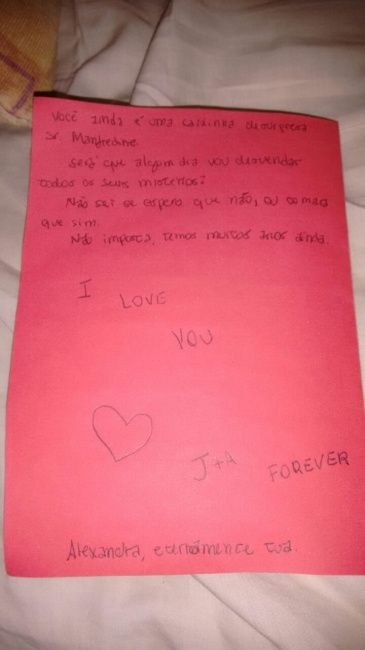 Você ainda é uma caixinha de surpresa
Sr. Manfredine.
Será que algum dia vou desvendar
todos os seus mistérios?
Não sei se espero que não, ou
que sim.
Não importa, temos muitos anos ainda.
I
LOVE
YOU
J+A FOREVER
Alexandra, eternamente tua.